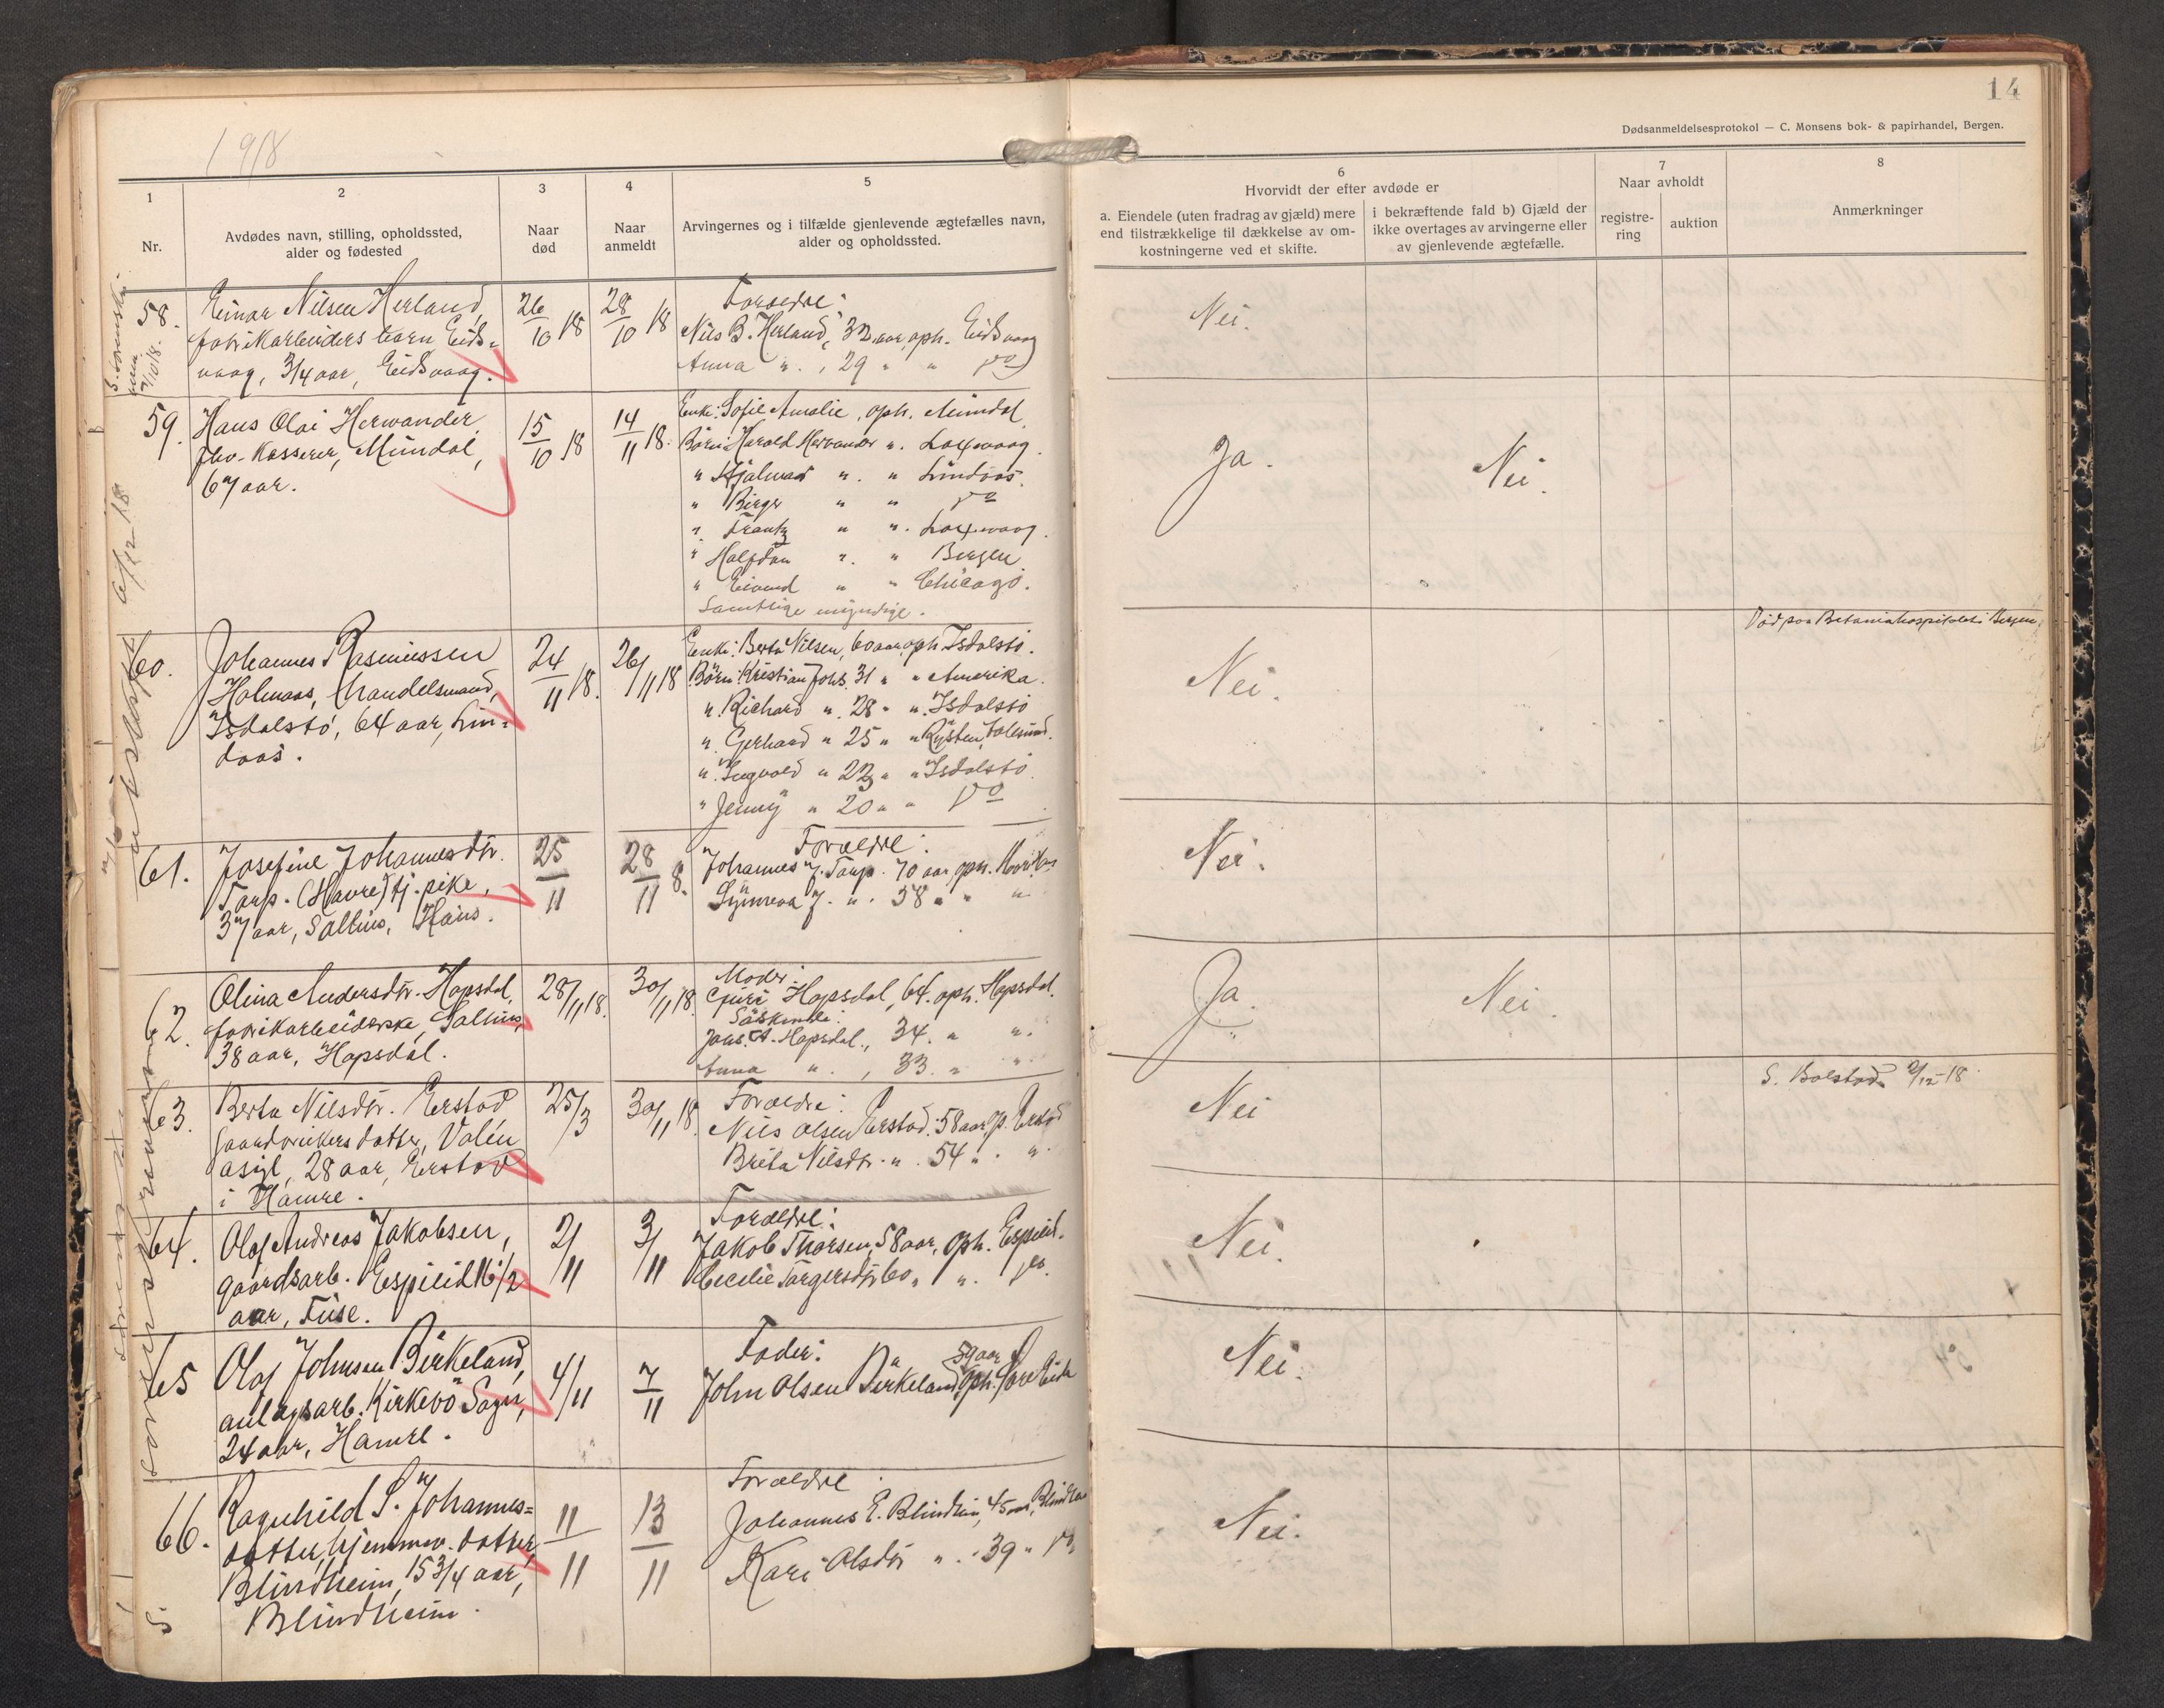 14
Dødsanmeldelsesprotokol — C. Monsens bok- & papirhandel, Bergen.
1918
1
2
3
4
5
6
7
8
Nr.
Avdødes navn, stilling, opholdssted,
alder og fødested
Naar
død
Naar
anmeldt
Arvingernes og i tilfælde gjenlevende ægtefælles navn,
alder og opholdssted.
Hvorvidt der efter avdøde er
a. Eiendele (uten fradrag av gjæld) mere
end tilstrækkelige til dækkelse av om-
kostningerne ved et skifte.
i bekræftende fald b) Gjæld der
ikke overtages av arvingerne eller
av gjenlevende ægtefælle.
Naar avholdt
registre-
ring
auktion
Anmerkninger
58.
Einar Nilsen Herland,
fabrikarbeiders barn Eids-
vaag, 3/4 aar, Eidsvaag.
26/10 18
28/10 18
Forældre:
Nils B. Herland, 32 aar, oph. Eidsvaag
Anna " , 29 " " do
Nei.
59.
Hans Olai Herwander,
fhv. Kasserer, Mundal,
67 aar.
15/10 18
14/11 18.
Enke: Sofie Amalie, oph. Mundal
Börn: Harald Herwander " Laxevaag.
" Hjalmar " " Lindaas.
" Birger " " do
" Frantz " " Laxevaag.
" Halfdan " " Bergen
" Eivind " " Chicago.
Samtlige myndige.
Ja.
Nei.
60.
Johannes Rasmussen
Holmaas, handelsmand,
Isdalstö, 64 aar, Lin-
daas.
24/11 18.
26/11 18
Enke: Berta Nilsen, 60 aar, oph. Isdalstö.
Börn: Kristian Johs. 31 " " Amerika.
" Richard " 28 " " Isdalstö
" Gerhard " 25 "
" Ingvald " 22 " " Isdalstö.
" Jenny " 20 " " do
Nei.
Död paa Betaniahospitalet i Bergen
61.
Josefine Johannesdtr.
Tarp. (Havre) tj. pike,
37 aar, Salhus, Haus.
25/11
28/11 8.
Forældre:
Johannes J. Tarp. 70 aar, oph.
Synneva J. " 58 " " "
Nei.
62.
Olina Andersdtr. Hopsdal,
fabrikarbeiderske, Salhus,
38 aar, Hopsdal.
28/11 18.
30/11 18.
Moder:
Guri Hopsdal, 64. oph. Hopsdal.
Söskende:
Johs. A. Hopsdal, 34. " "
Anna " , 33. " "
Ja.
Nei.
63.
Berta Nilsdtr. Erstad
gaardbrukers datter, Valen
asyl, 28 aar, Erstad
i Hamre.
25/3
30/11 18.
Forældre:
Nils Olsen Erstad. 58 aar, op. Erstad
Brita Nilsdtr. " 54 " "
Nei
S. Bolstad 2/12-18
64.
Olaf Andreas Jakobsen,
gaardsarb. Espeid 16 1/2
aar, Fuse.
2/11
3/11
Forældre:
Jakob Thorsen, 58 aar, oph. Espeid.
Cecilie Torgersdtr. 60 " " do.
Nei.
65
Olaf Johnsen Birkeland,
anlægsarb. Kirkebö Sogn,
24 aar, Hamre.
4/11
7/11
Fader:
59 aar
John Olsen Birkeland, oph.
Nei.
66.
Ragnhild S. Johannes-
datter, hjemmev. datter,
Blindheim, 15 3/4 aar,
Blindheim.
11/11
13/11
Forældre
Johannes E. Blindheim, 45 aar, Blindheim
Kari Olsdtr " . 39 " do
Nei.